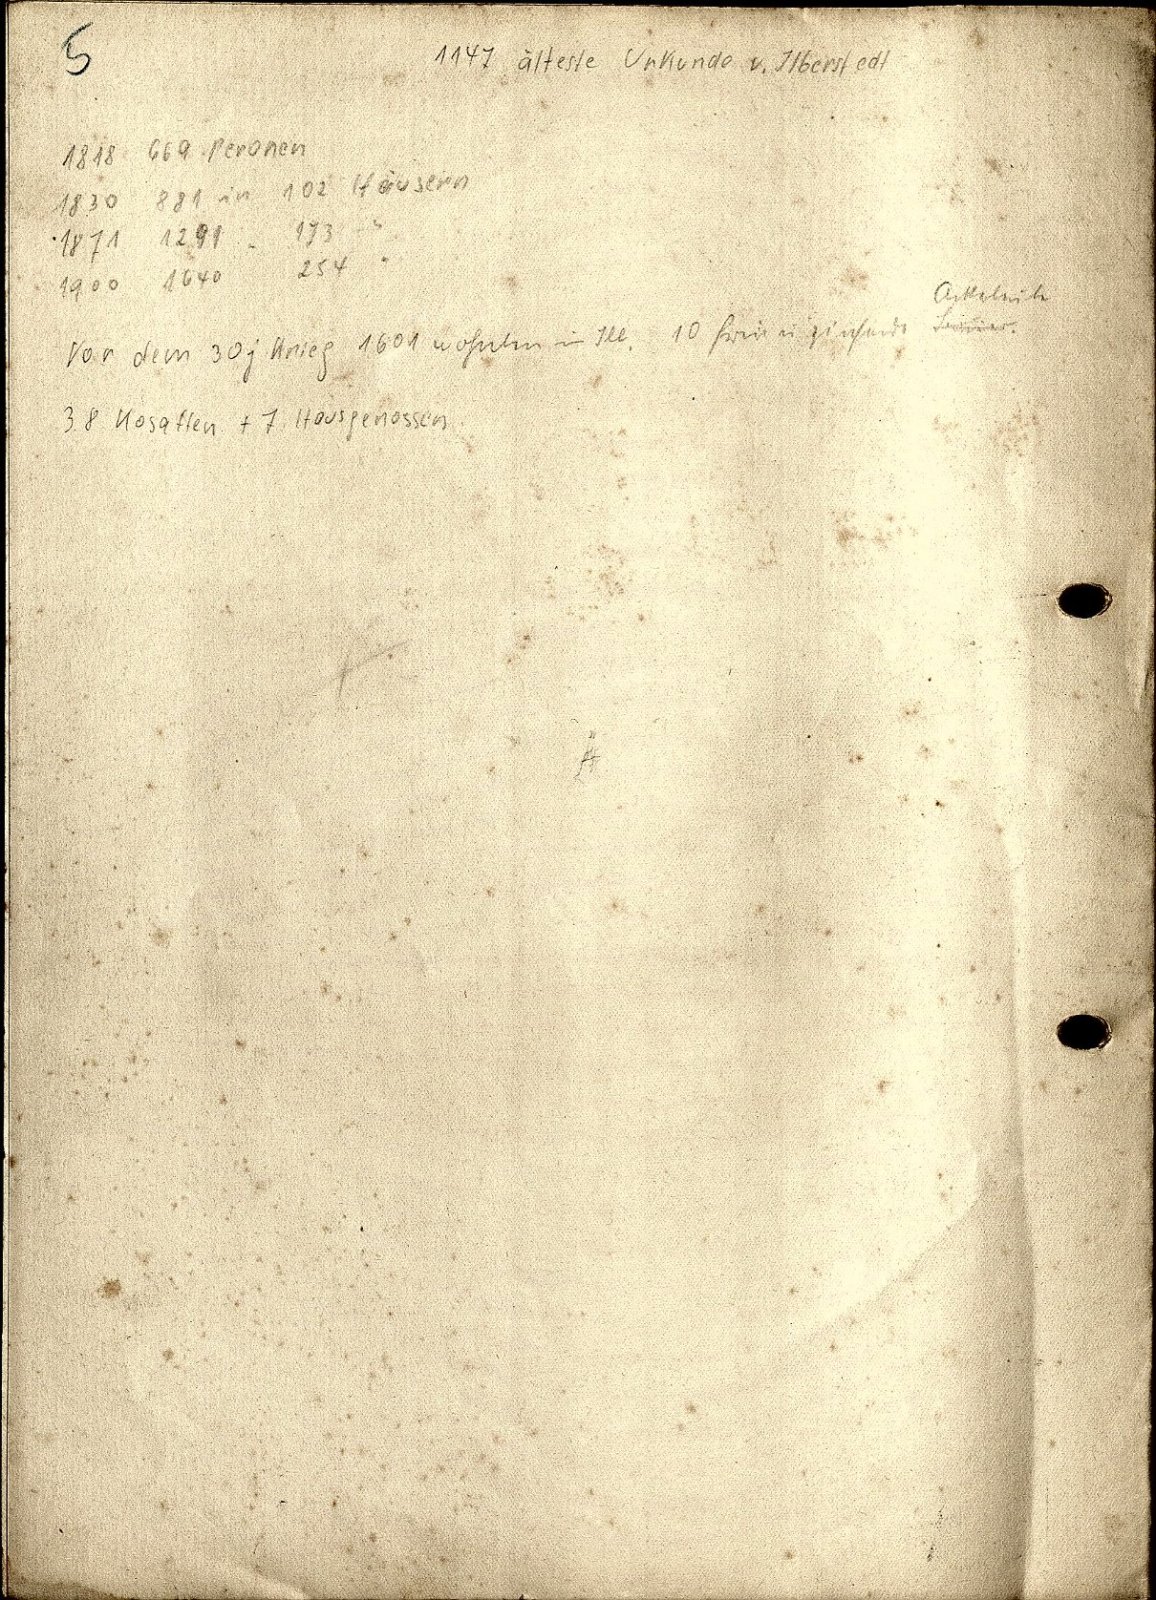 5
1147 älteste Urkunde v. Ilberstedt
1818 669 Peronen
1830 881 in 102 Häusern
1871 1291 - 173 "
1900 1640 254 "
Ackeleute
Vor dem 30j Krieg 1601 wohnten in Ilb. 10 freie u zinsende
38 Kosatten + 7 Hausgenossen